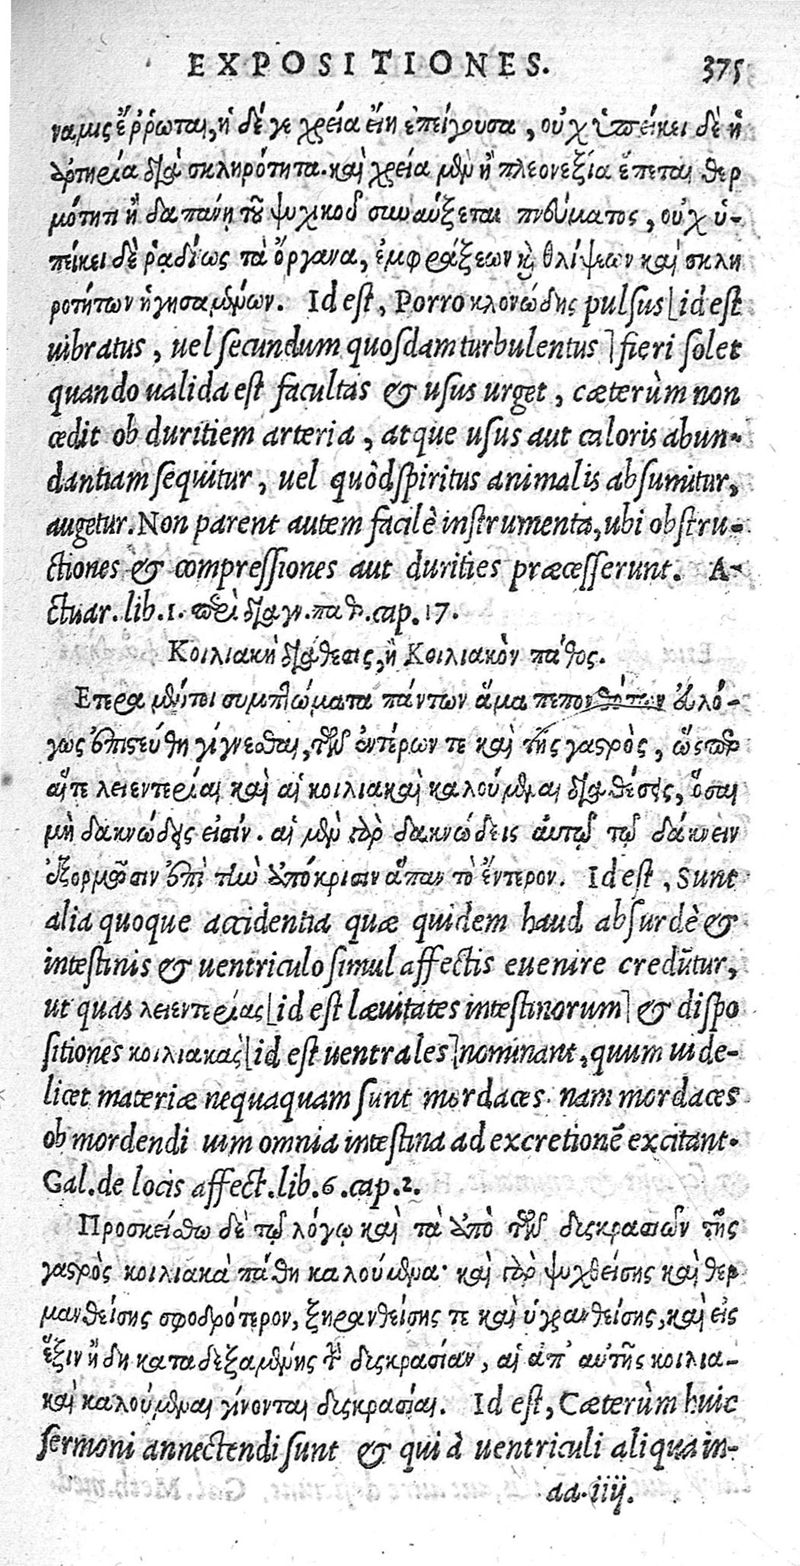 EXPOSITIONES. 375
ναμις ἔῤῥωται, ἡ δέ γε χρεία εἴη ἐπείγουσα, οὐχ ὑπείκει δὲ ἡ
ἀρτηρία διὰ σκληρότητα. καὶ χρεία μὲν ἢ πλεονεξία ἕπεται θερ
μότητι ἢ δαπάνῃ τοῦ ψυχικοῦ συναύξεται πνεύματος, οὐχ ὑ-
πείκει δὲ ῥαδίως τὰ ὄργανα, ἐμφράξεων καὶ θλίψεων καὶ σκλη
ροτήτων ἡγησαμένων. Id est, Porro κλονώδης pulsus [id est
uibratus, uel secundum quosdam turbulentus] fieri solet
quando ualida est facultas & usus urget, cæterùm non
cedit ob duritiem arteria, atque usus aut caloris abun-
dantiam sequitur, uel quòd spiritus animalis absumitur,
augetur. Non parent autem facilè instrumenta, ubi obstru-
ctiones & compressiones aut durities præcesserunt. A-
ctuar. lib. 1. περὶ διαγν. παθ. cap. 17.
Κοιλιακὴ διάθεσις, ἢ Κοιλιακὸν πάθος.
Ετερα μέντοι συμπτώματα πάντων ἅμα πεπονθότων ἀλό-
γως ἐπιστεύθη γίγνεσθαι, τῶν ἐντέρων τε καὶ τῆς γαστρὸς, ὥσπερ
αἵ τε λειεντερίαι καὶ αἱ κοιλιακαὶ καλούμεναι διαθέσεις, ὅσαι
μὴ δακνώδεις εἰσίν. αἱ μὲν γὰρ δακνώδεις αὐτῷ τῷ δάκνειν
ἐξορμῶσιν ἐπὶ τὴν ἀπόκρισιν ἅπαν τὸ ἔντερον. Id est, Sunt
alia quoque accidentia quæ quidem haud absurdè &
intestinis & uentriculo simul affectis euenire credūtur,
ut quas λειεντερίας [id est læuitates intestinorum] & dispo
sitiones κοιλιακὰς [id est uentrales] nominant, quum uide-
licet materiæ nequaquam sunt mordaces. nam mordaces
ob mordendi uim omnia intestina ad excretionē excitant.
Gal. de locis affect. lib. 6. cap. 2.
Προσκείσθω δὲ τῷ λόγῳ καὶ τὰ ἀπὸ τῶν δυσκρασιῶν τῆς
γαστρὸς κοιλιακὰ πάθη καλούμενα· καὶ γὰρ ψυχθείσης καὶ θερ
μανθείσης σφοδρότερον, ξηρανθείσης τε καὶ ὑγρανθείσης, καὶ εἰς
ἕξιν ἤδη καταδεξαμένης τὴν δυσκρασίαν, αἱ ἀπ' αὐτῆς κοιλια-
καὶ καλούμεναι γίνονται δυσκρασίαι. Id est, Cæterùm huic
sermoni annectendi sunt & qui à uentriculi aliqua in-
aa. iiij.